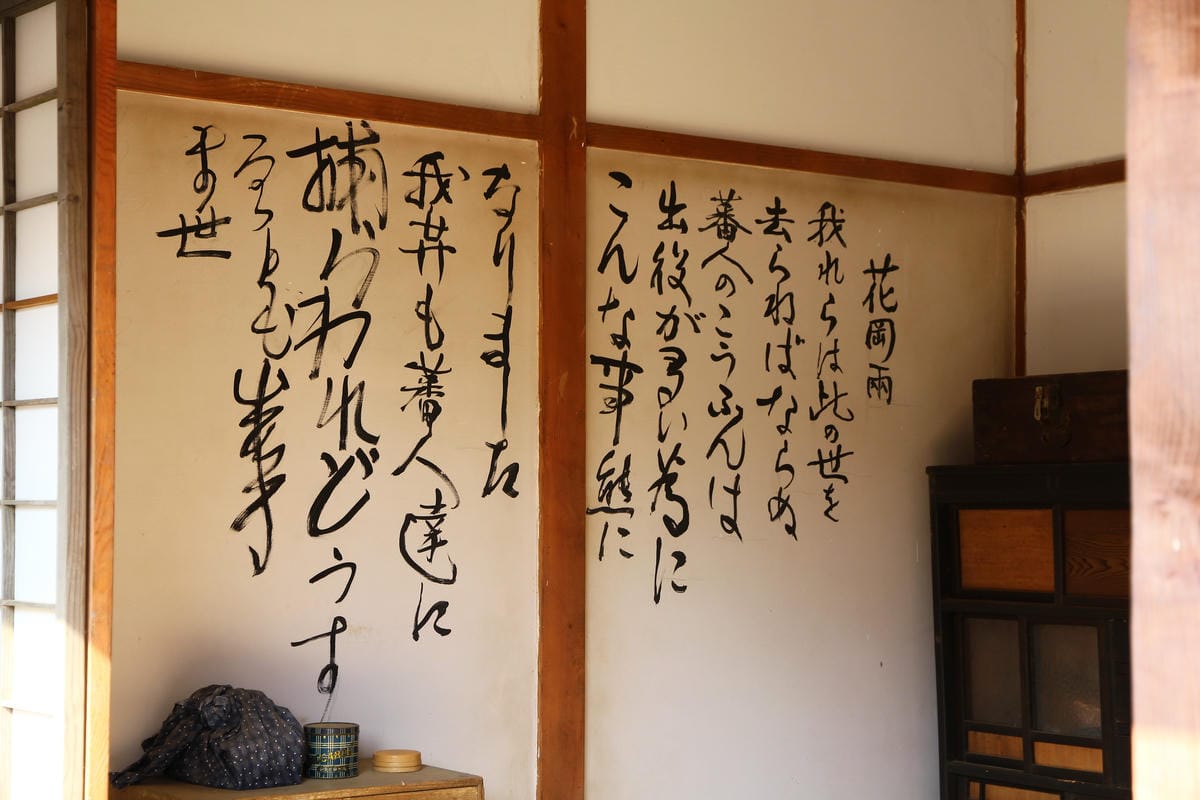 花岡兩
我れらは此の世を
去らねばならぬ
蕃人のこうふんは
出役が多い為に
こんな事態に
なりました
我等も蕃人達に
捕らわれどうす
ることも出来
ま世